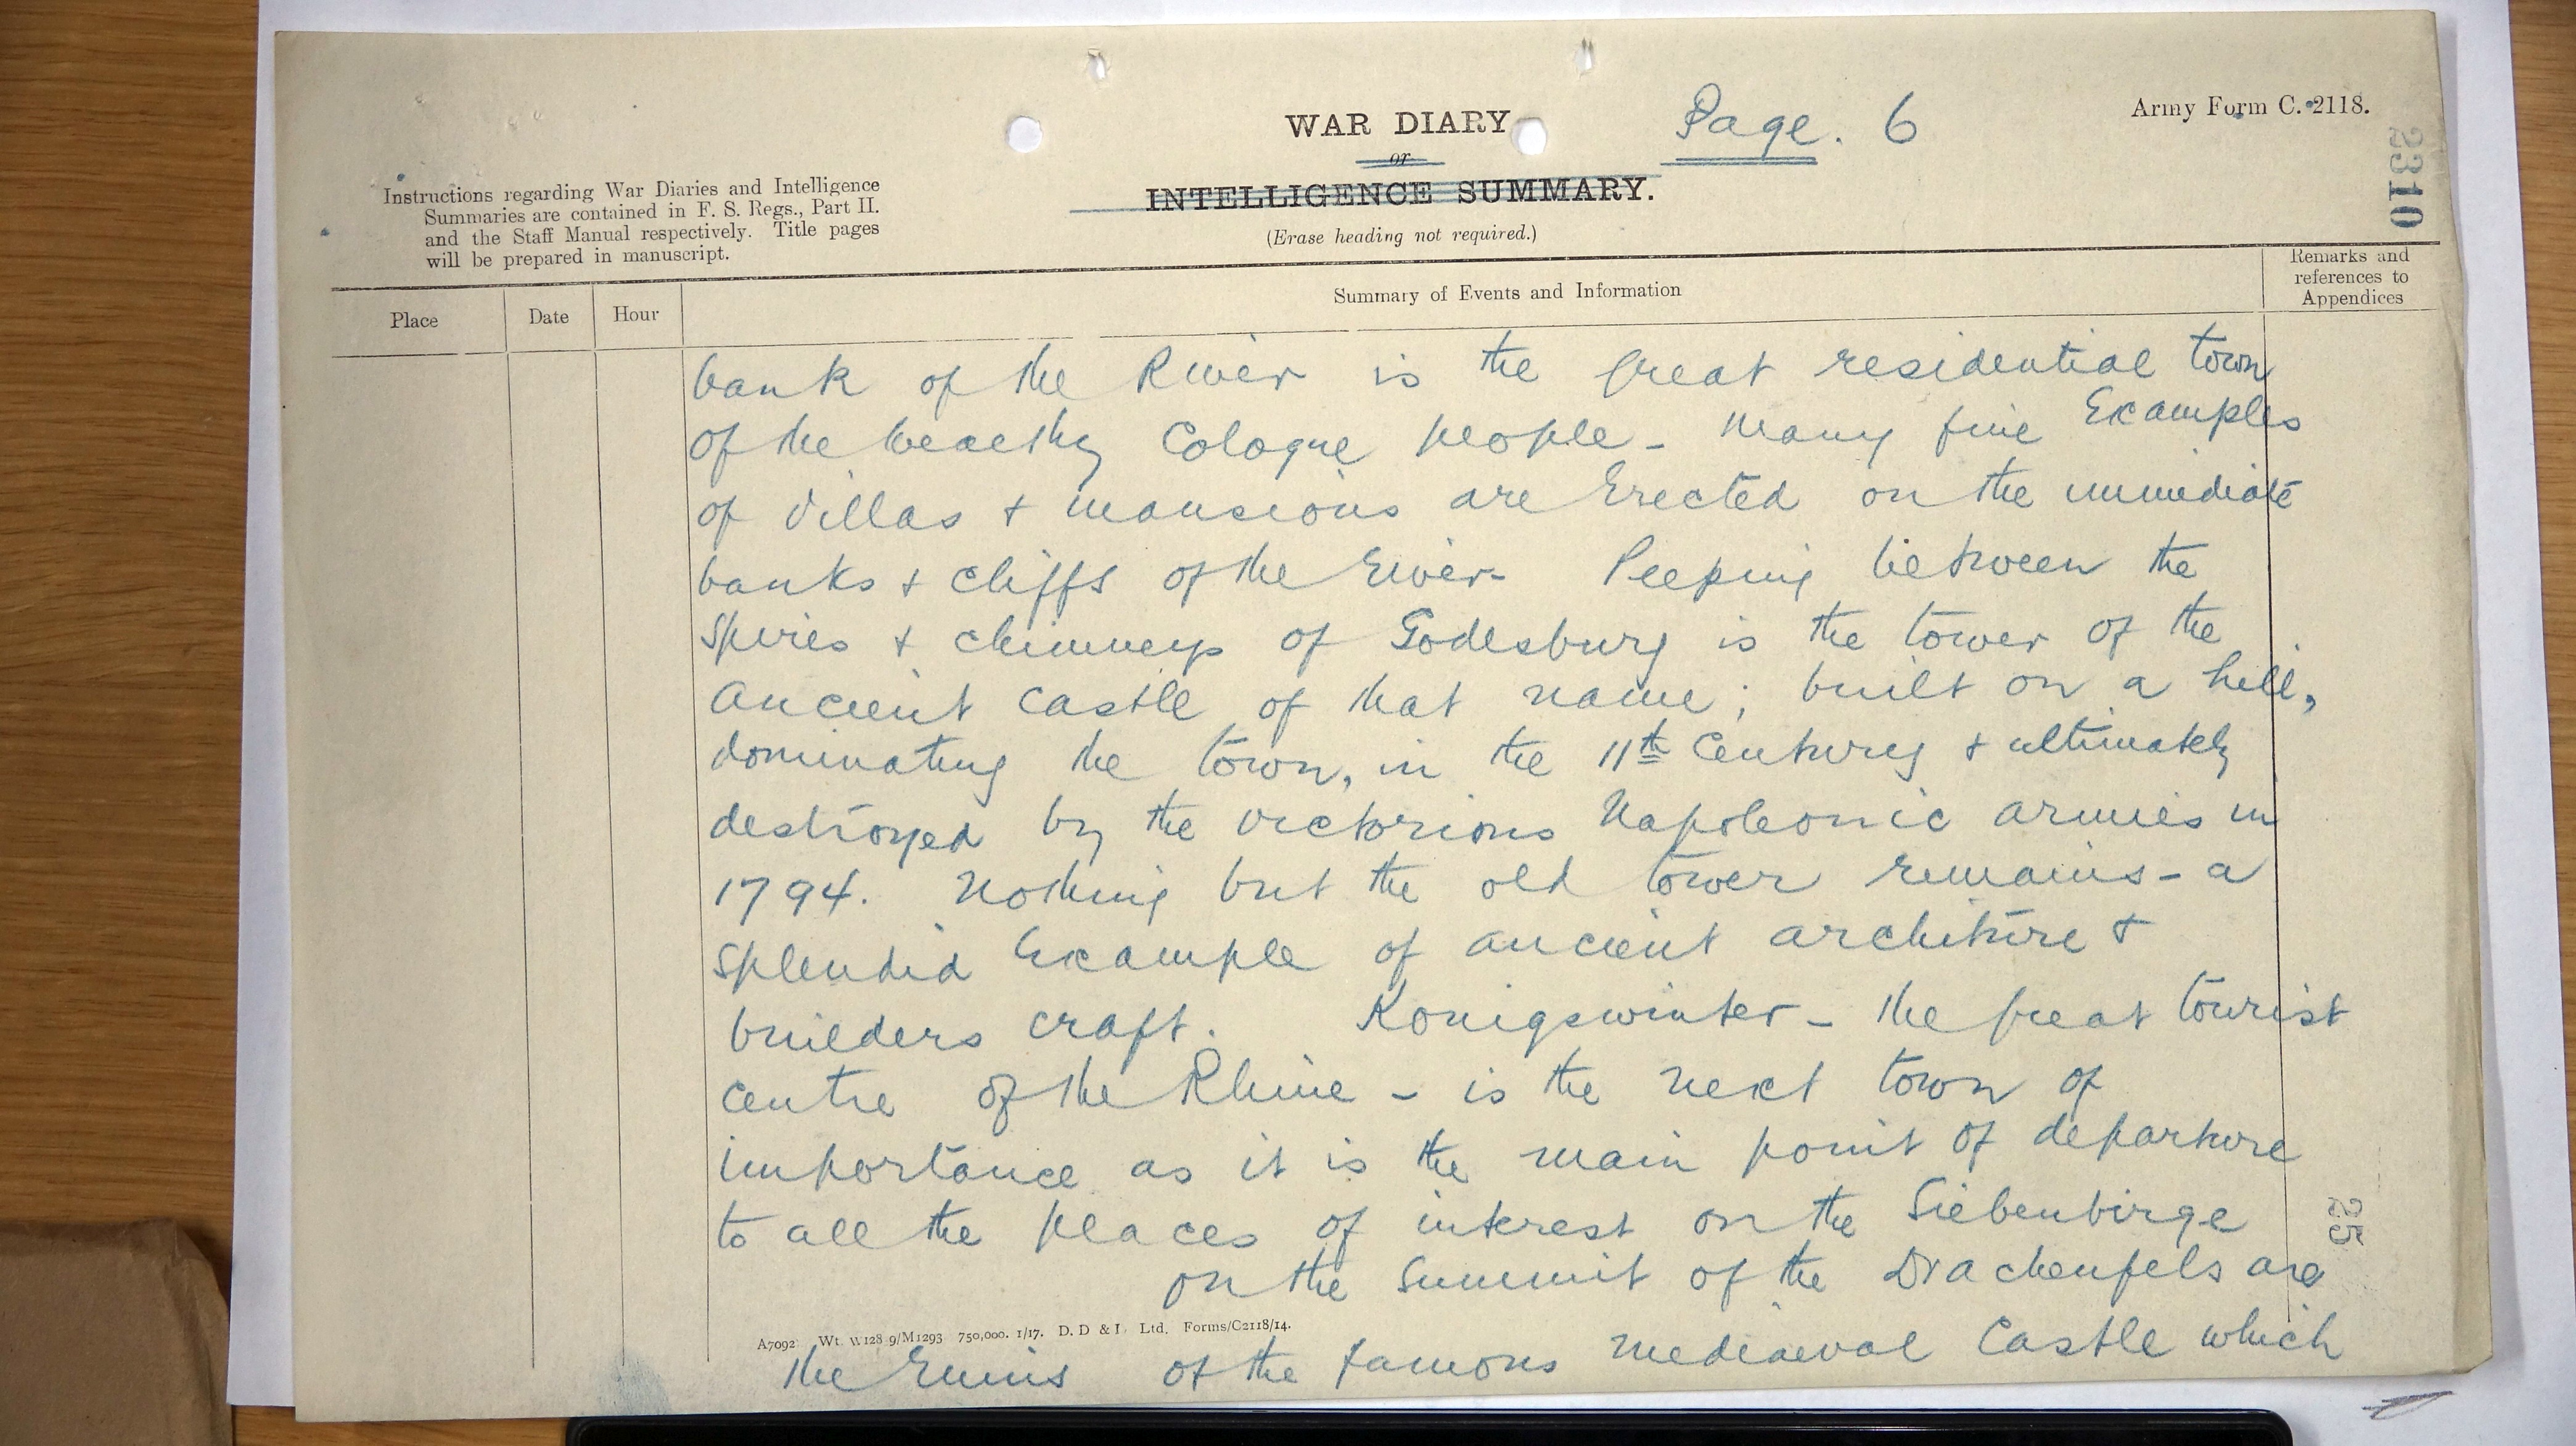 WAR DIARY
or
INTELLIGENCE SUMMARY.
(Erase heading not required.)
Page. 6
Army Form C. 2118.
2310
Instructions regarding War Diaries and Intelligence
Summaries are contained in F. S. Regs., Part II.
and the Staff Manual respectively. Title pages
will be prepared in manuscript.
Place
Date
Hour
Summary of Events and Information
Remarks and
references to
Appendices
bank of the River is the great residential town
of the wealthy Cologne people - Many fine Examples
of villas & mansions are Erected on the immediate
banks & cliffs of the River - Peeping between the
spires & chimneys of Godesburg is the tower of the
ancient castle of that name; built on a hill,
dominating the town, in the 11th Century & ultimately
destroyed by the victorious Napoleonic armies in
1794. Nothing but the old tower remains - a
splendid Example of ancient architure &
builders craft. Konigswinter - the great tourist
centre of the Rhine - is the next town of
importance as it is the main point of departure
to all the places of interest on the Siebenbirge
on the summit of the Drachenfels are
the Ruins of the famous mediaeval Castle which
25
A7092 Wt. W128 9/M1293 750,000. 1/17. D. D & L Ltd. Forms/C2118/14.